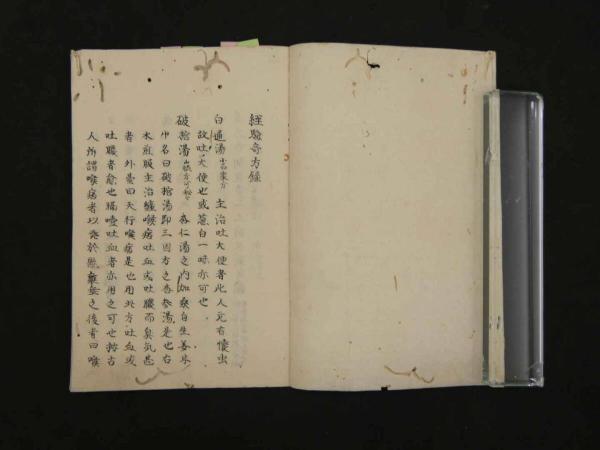 經驗奇方錄
白通湯 主治吐大便者此人元有懷虫
故吐大便也或蔥白一味亦可也
破棺湯 杏仁湯之内加桑白生姜水
中名曰破棺湯即三因方之杏參湯是也右
水煎服主治纏喉痺吐血或吐膿而臭氣甚
者外臺曰天行喉痺是也用此方吐血或
吐膿者愈也膈噎吐血者亦用之可也按古
人所謂喉痺者以 於 之後者曰喉